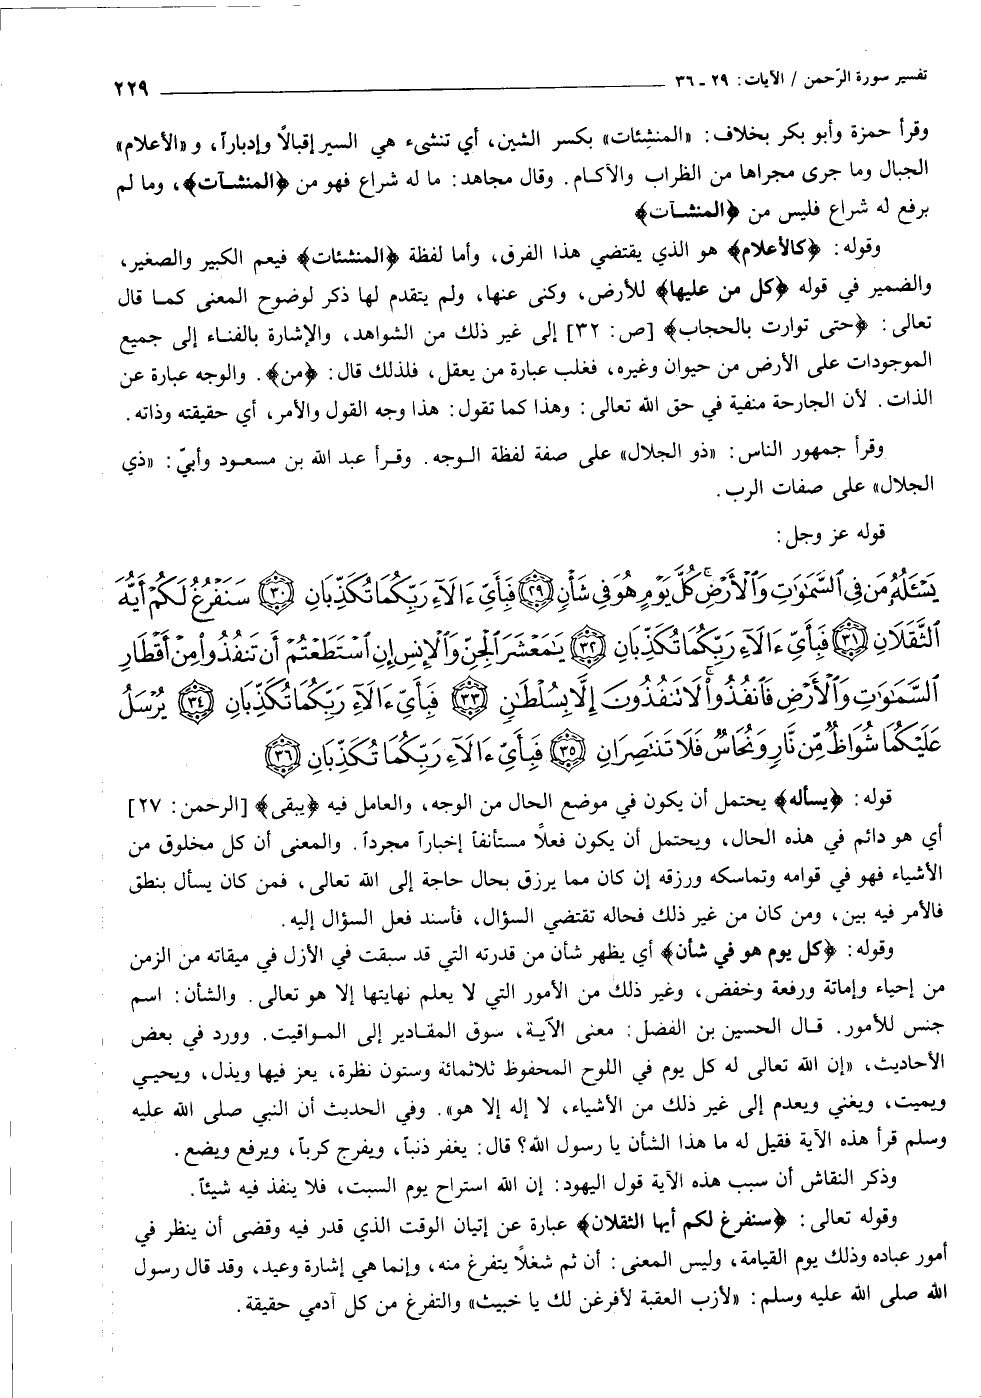 تفسير سورة الرّحمن / الآيات: ٢٩ ـ ٣٦ ٢٢٩
وقرأ حمزة وأبو بكر بخلاف: «المنشِئات» بكسر الشين، أي تنشىء هي السير إقبالاً وإدباراً، و «الأعلام»
الجبال وما جرى مجراها من الظراب والأكام. وقال مجاهد: ما له شراع فهو من ﴿المنشـآت﴾، وما لم
برفع له شراع فليس من ﴿المنشـآت﴾
وقوله: ﴿كالأعلام﴾ هو الذي يقتضي هذا الفرق، وأما لفظة ﴿المنشئات﴾ فيعم الكبير والصغير،
والضمير في قوله ﴿كل من عليها﴾ للأرض، وكنى عنها، ولم يتقدم لها ذكر لوضوح المعنى كمـا قال
تعالى: ﴿حتى توارت بالحجاب﴾ [ص: ٣٢] إلى غير ذلك من الشواهد، والإشارة بالفنـاء إلى جميع
الموجودات على الأرض من حيوان وغيره، فغلب عبارة من يعقل، فلذلك قال: ﴿من﴾. والوجه عبارة عن
الذات. لأن الجارحة منفية في حق الله تعالى: وهذا كما تقول: هذا وجه القول والأمر، أي حقيقته وذاته.
وقرأ جمهور الناس: «ذو الجلال» على صفة لفظة الـوجه. وقـرأ عبد الله بن مسعـود وأبيّ: «ذي
الجلال» على صفات الرب.
قوله عز وجل:
يَسْـَٔلُهُۥ مَن فِي ٱلسَّمَٰوَٰتِ وَٱلْأَرْضِ ۚ كُلَّ يَوْمٍ هُوَ فِي شَأْنٍ ﴿٢٩﴾ فَبِأَيِّ ءَالَآءِ رَبِّكُمَا تُكَذِّبَانِ ﴿٣٠﴾ سَنَفْرُغُ لَكُمْ أَيُّهَ
ٱلثَّقَلَانِ ﴿٣١﴾ فَبِأَيِّ ءَالَآءِ رَبِّكُمَا تُكَذِّبَانِ ﴿٣٢﴾ يَٰمَعْشَرَ ٱلْجِنِّ وَٱلْإِنسِ إِنِ ٱسْتَطَعْتُمْ أَن تَنفُذُوا۟ مِنْ أَقْطَارِ
ٱلسَّمَٰوَٰتِ وَٱلْأَرْضِ فَٱنفُذُوا۟ ۚ لَا تَنفُذُونَ إِلَّا بِسُلْطَٰنٍ ﴿٣٣﴾ فَبِأَيِّ ءَالَآءِ رَبِّكُمَا تُكَذِّبَانِ ﴿٣٤﴾ يُرْسَلُ
عَلَيْكُمَا شُوَاظٌ مِّن نَّارٍ وَنُحَاسٌ فَلَا تَنتَصِرَانِ ﴿٣٥﴾ فَبِأَيِّ ءَالَآءِ رَبِّكُمَا تُكَذِّبَانِ ﴿٣٦﴾
قوله: ﴿يسأله﴾ يحتمل أن يكون في موضع الحال من الوجه، والعامل فيه ﴿يبقى﴾ [الرحمن: ٢٧]
أي هو دائم في هذه الحال، ويحتمل أن يكون فعلاً مستأنفاً إخباراً مجرداً. والمعنى أن كل مخلوق من
الأشياء فهو في قوامه وتماسكه ورزقه إن كان مما يرزق بحال حاجة إلى الله تعالى، فمن كان يسأل بنطق
فالأمر فيه بين، ومن كان من غير ذلك فحاله تقتضي السؤال، فأسند فعل السؤال إليه.
وقوله: ﴿كل يوم هو في شأن﴾ أي يظهر شأن من قدرته التي قد سبقت في الأزل في ميقاته من الزمن
من إحياء وإماتة ورفعة وخفض، وغير ذلك من الأمور التي لا يعلم نهايتها إلا هو تعالى. والشأن: اسم
جنس للأمور. قـال الحسين بن الفضل: معنى الآيـة، سوق المقـادير إلى المـواقيت. وورد في بعض
الأحاديث، «إن الله تعالى له كل يوم في اللوح المحفوظ ثلاثمائة وستون نظرة، يعز فيها ويذل، ويحيـي
ويميت، ويغني ويعدم إلى غير ذلك من الأشياء، لا إله إلا هو». وفي الحديث أن النبي صلى الله عليه
وسلم قرأ هذه الآية فقيل له ما هذا الشأن يا رسول الله؟ قال: يغفر ذنباً، ويفرج كرباً، ويرفع ويضع.
وذكر النقاش أن سبب هذه الآية قول اليهود: إن الله استراح يوم السبت، فلا ينفذ فيه شيئاً.
وقوله تعالى: ﴿سنفرغ لكم أيها الثقلان﴾ عبارة عن إتيان الوقت الذي قدر فيه وقضى أن ينظر في
أمور عباده وذلك يوم القيامة، وليس المعنى: أن ثم شغلاً يتفرغ منه، وإنما هي إشارة وعيد، وقد قال رسول
الله صلى الله عليه وسلم: «لأزب العقبة لأفرغن لك يا خبيث» والتفرغ من كل آدمي حقيقة.